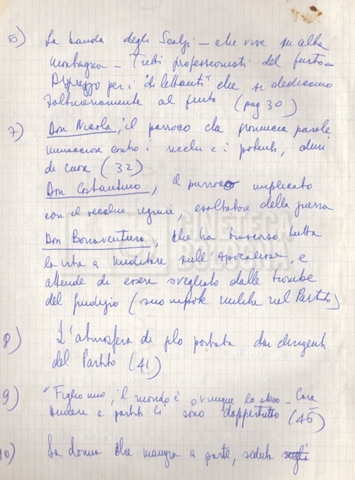 6) La banda degli Scalzi – che vive su alta
montagna – Tutti professionisti del furto –
Disprezzo per i "dilettanti" che si dedicano
saltuariamente al furto (pag 30)
7) Don Nicola, il parroco che pronuncia parole
minacciose contro i ricchi e i potenti, duri
di cuore (32)
Don Costantino, il parroco implicato
con il vecchio regime, esaltatore della guerra
Don Bonaventura, che ha trascorso tutta
la vita a meditare sull'Apocalisse, e
attende di essere svegliato dalle trombe
del prodigio (suo nipote milita nel Partito)
8) L'atmosfera di portata dai dirigenti
del Partito (41)
9) "Figlio mio, il mondo è ovunque lo stesso – Case
e partiti ce ne sono dappertutto (45)
10) La donna che mangia a parte, seduta sugli